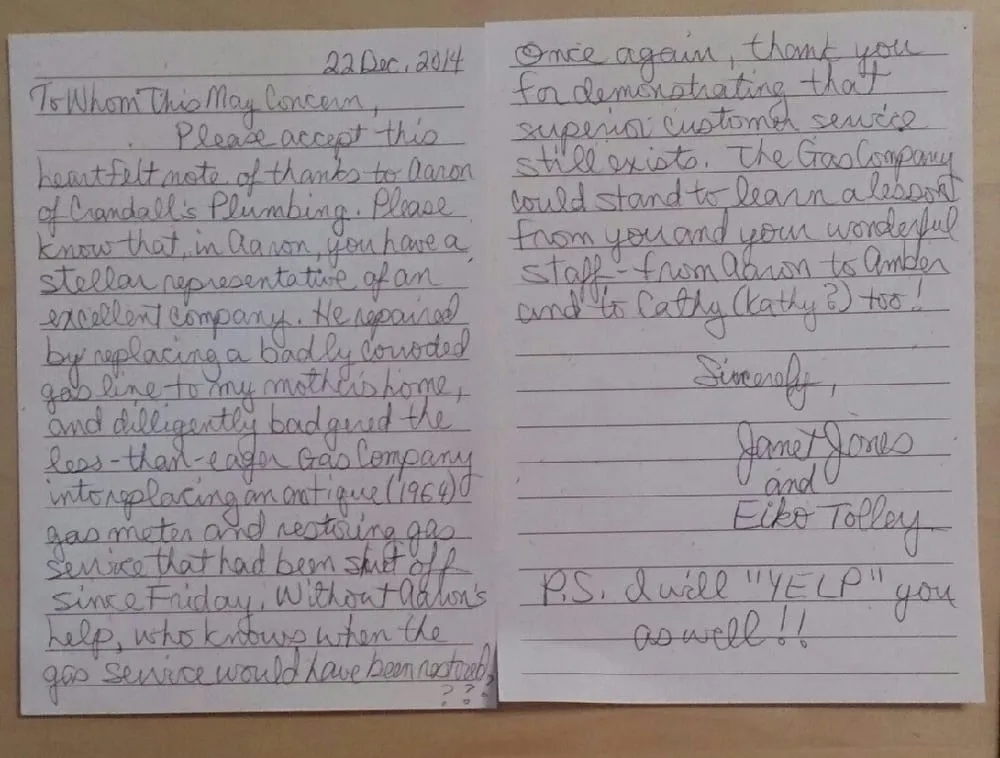 22 Dec. 2014
To Whom This May Concern,
Please accept this
heartfelt note of thanks to Aaron
of Crandall's Plumbing. Please
know that, in Aaron, you have a
stellar representative of an
excellent company. He repaired
by replacing a badly corroded
gas line to my mother's home,
and dilligently badgered the
less-than-eager Gas Company
into replacing an antique (1964)
gas meter and restoring gas
service that had been shut off
since Friday. Without Aaron's
help, who knows when the
gas service would have been restored?
???
Once again, thank you
for demonstrating that
superior customer service
still exists. The Gas Company
could stand to learn a lesson
from you and your wonderful
staff - from Aaron to Amber
and to Cathy (Kathy?) too!
Sincerely,
Janet Jones
and
Eiko Tolley
P.S. I will "YELP" you
as well!!